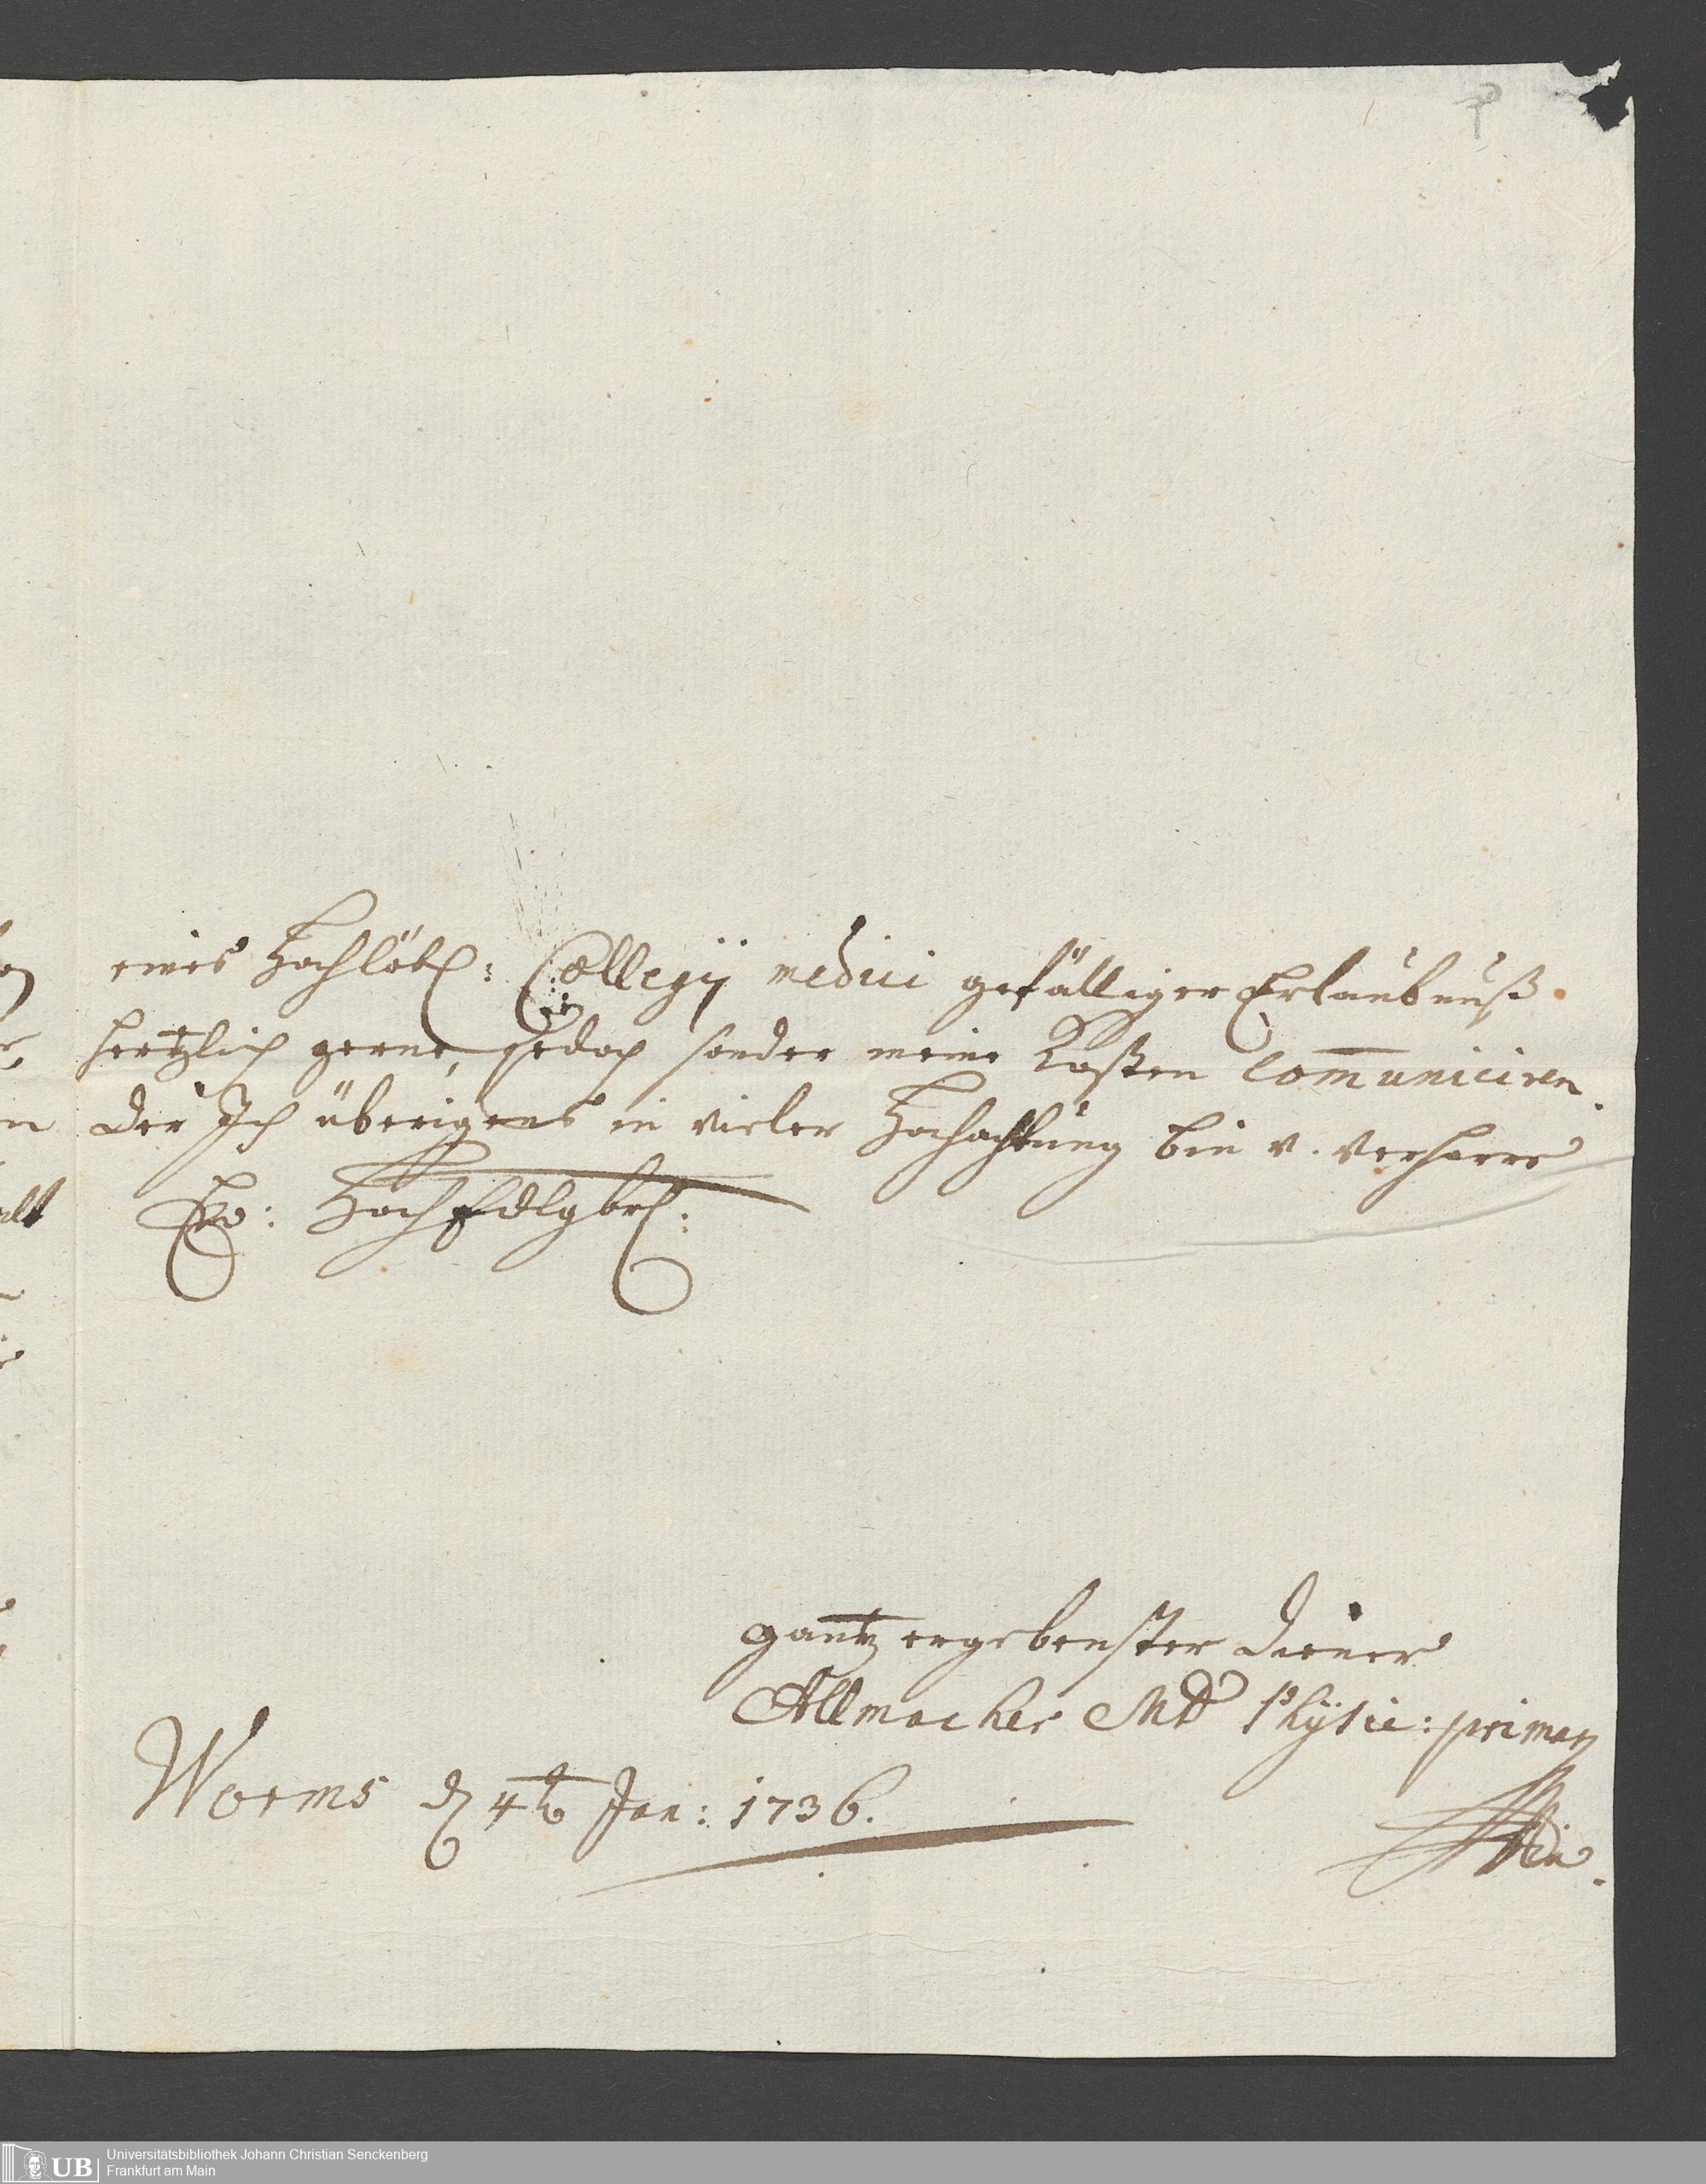 eines Hochlöbl: Collegij medici gefälliger Erlaubnuß.
hertzlich gerne, jedoch sonder meine Kosten com̅uniciren.
der Ich überigens in vieler Hochachtung bin v. verharre
Ew: HochEdlgbrl:
gantz ergebenster Diener
Allmacher MD Physic: primar
Worms d 4t Jan: 1736.
UB
Universitätsbibliothek Johann Christian Senckenberg
Frankfurt am Main